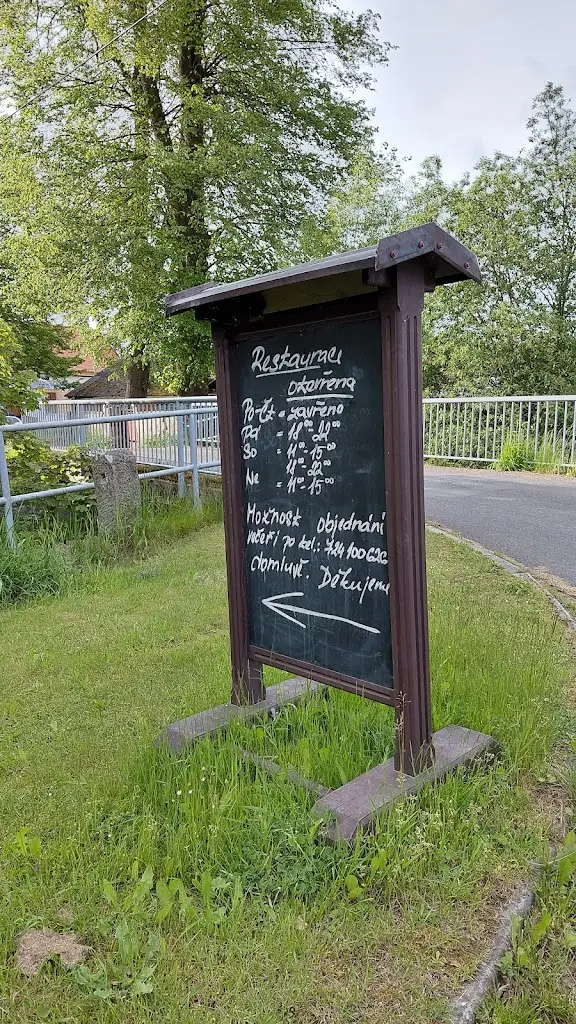 Restaurace
otevřena
Po-Čt = zavřeno
Pá = 18⁰⁰-22⁰⁰
So = 11⁰⁰-15⁰⁰
18⁰⁰-22⁰⁰
Ne = 11⁰⁰-15⁰⁰
Možnost objednání
večeří po tel.: 724100626
domluvě. Děkujeme